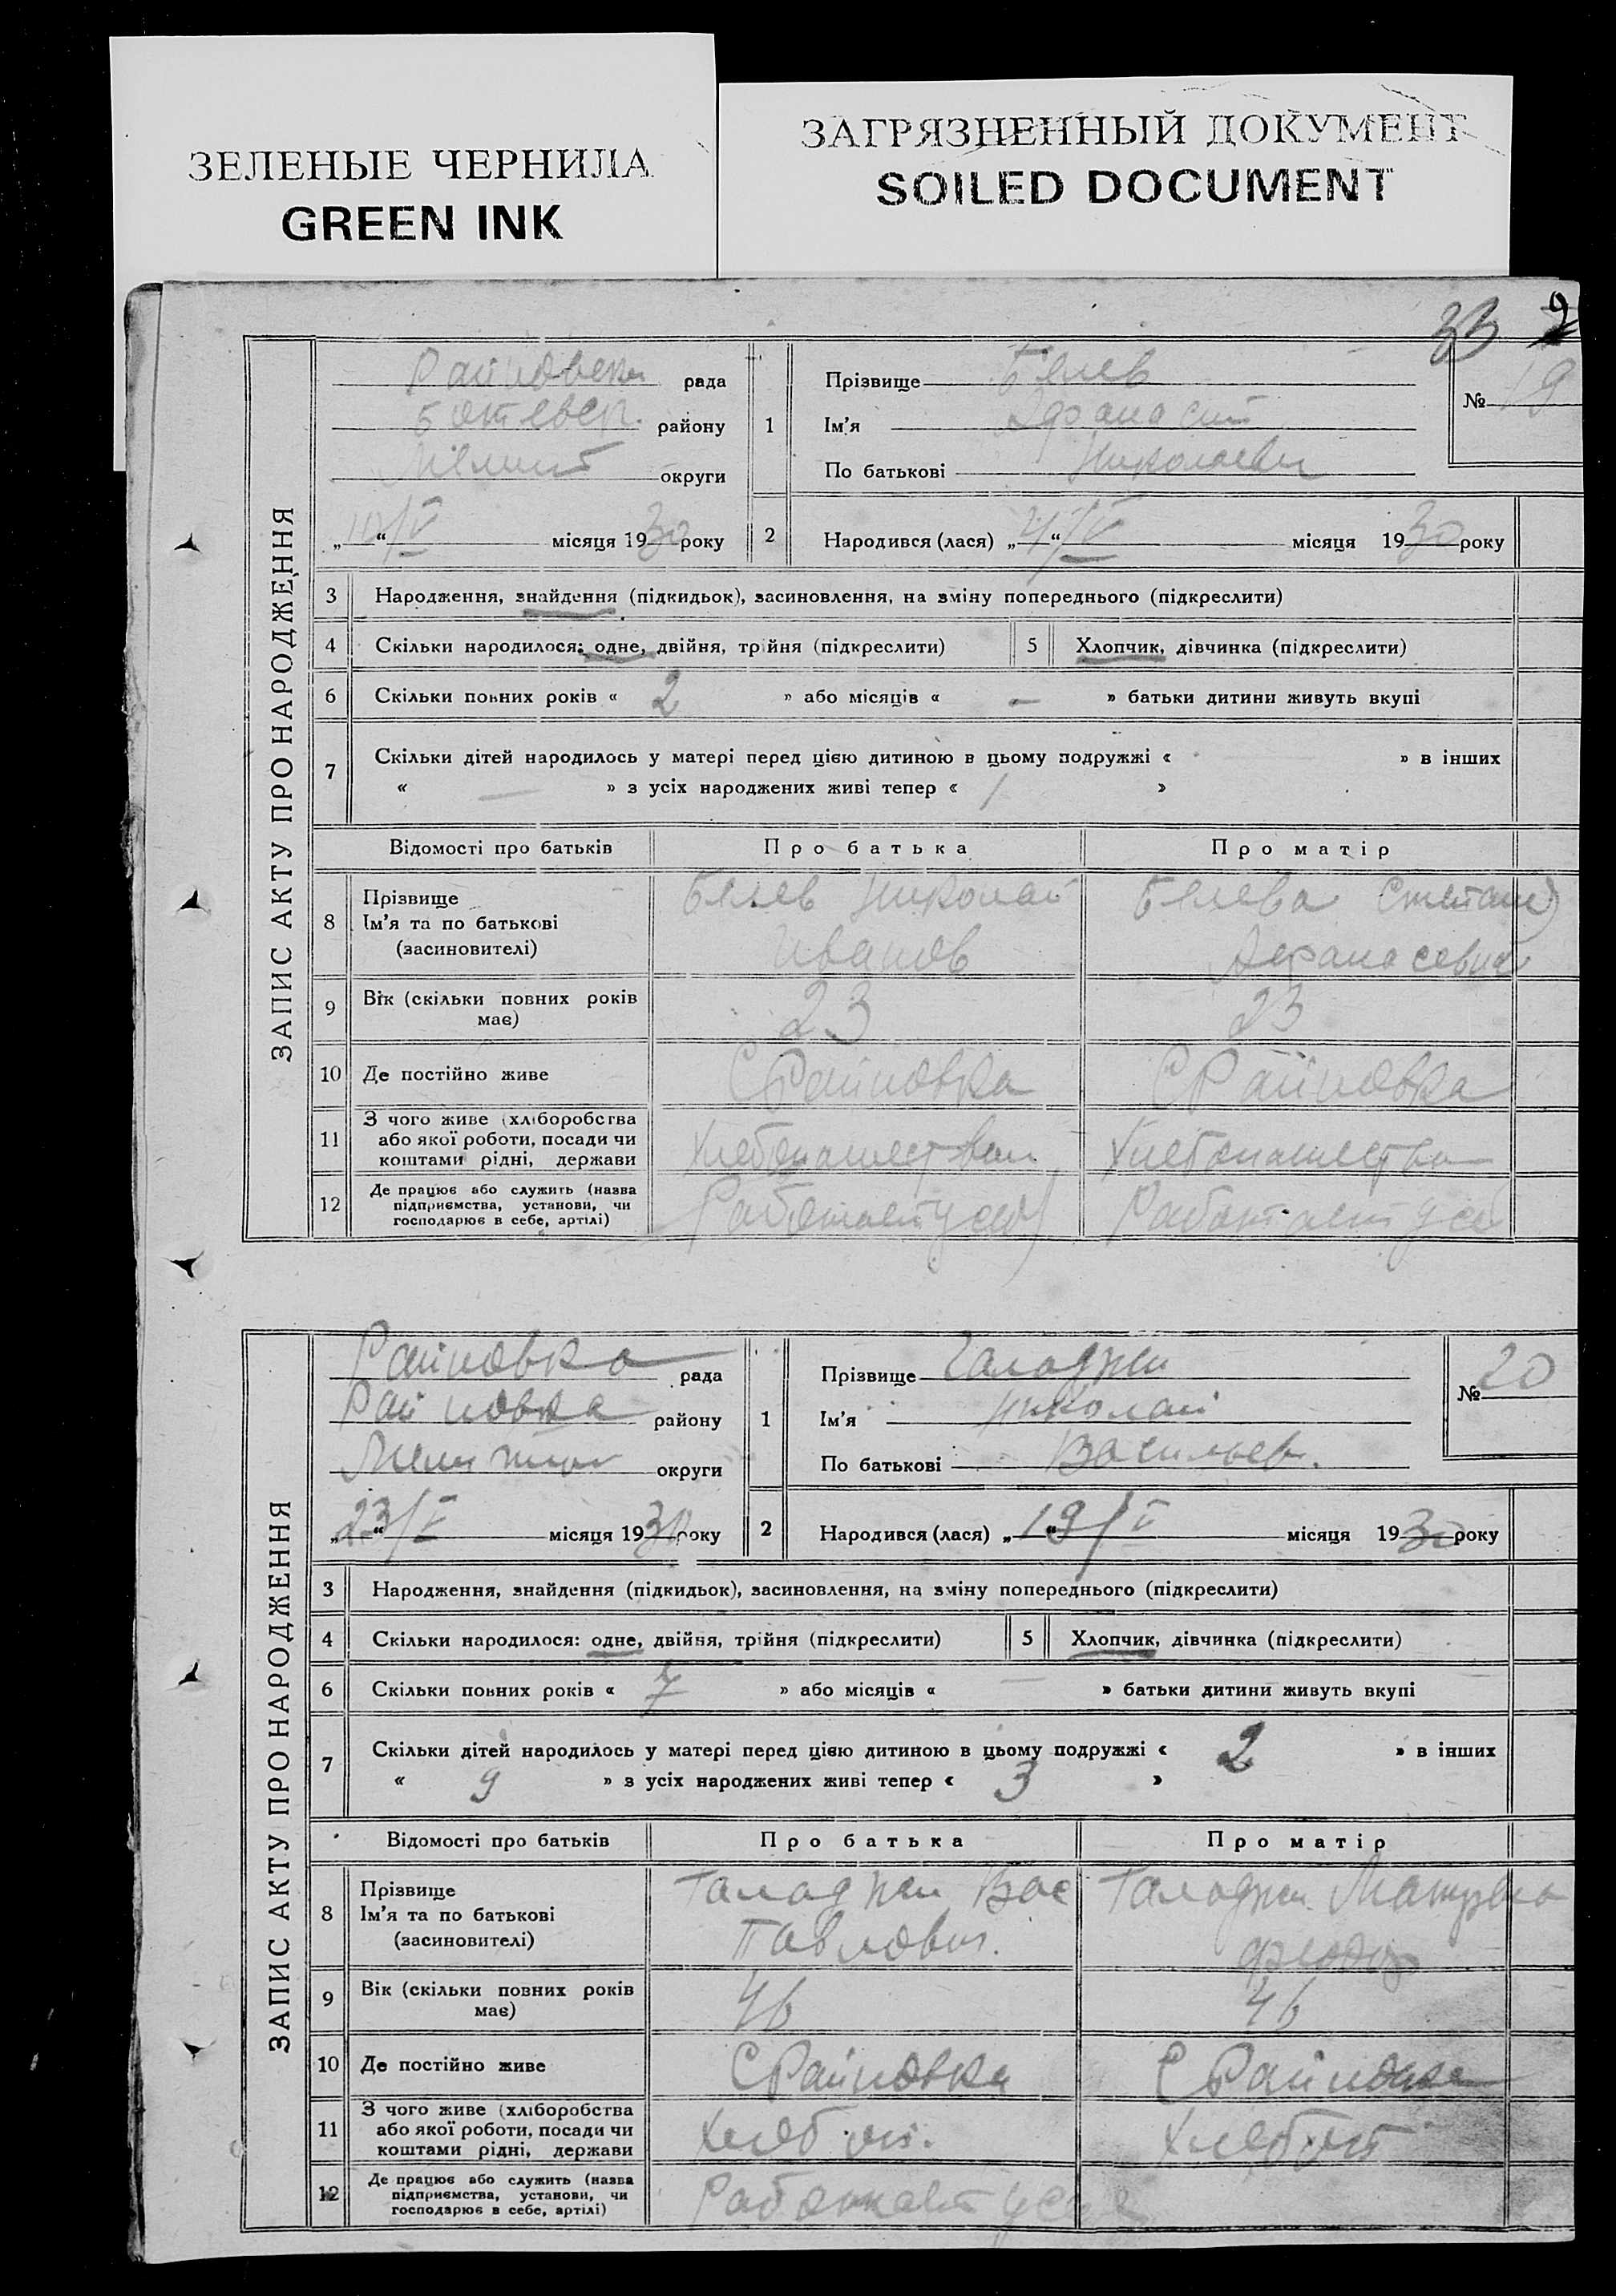 ЗЕЛЕНЫЕ ЧЕРНИЛА
GREEN INK
ЗАГРЯЗНЕННЫЙ ДОКУМЕНТ
SOILED DOCUMENT
33
ЗАПИС АКТУ ПРО НАРОДЖЕННЯ
рада
району
округи
„ “ місяця 1930 року
1
Прізвище Белев
Ім'я Афанасий
По батькові
№ 19
2 Народився (лася) „ “ місяця 1930 року
3 Народження, знайдення (підкидьок), засиновлення, на зміну попереднього (підкреслити)
4 Скільки народилося: одне, двійня, трійня (підкреслити)
5 Хлопчик, дівчинка (підкреслити)
6 Скільки повних років « 2 » або місяців « — » батьки дитини живуть вкупі
7 Скільки дітей народилось у матері перед цією дитиною в цьому подружжі « — » в інших
« — » з усіх народжених живі тепер « 1 »
Відомості про батьків Про батька Про матір
8 Прізвище
Ім'я та по батькові
(засиновителі)
Белев Николай
Иванов
Белева
9 Вік (скільки повних років має)
23 23
10 Де постійно живе
С Райновка С Райновка
11 З чого живе (хліборобства
або якої роботи, посади чи
коштами рідні, держави
12 Де працює або служить (назва
підприємства, установи, чи
господарює в себе, артілі)
ЗАПИС АКТУ ПРО НАРОДЖЕННЯ
Райновка рада
Райновка району
округи
„23/V“ місяця 1930 року
1
Прізвище Галаджи
Ім'я Николай
По батькові Васильев.
№ 20
2 Народився (лася) „19/V“ місяця 1930 року
3 Народження, знайдення (підкидьок), засиновлення, на зміну попереднього (підкреслити)
4 Скільки народилося: одне, двійня, трійня (підкреслити)
5 Хлопчик, дівчинка (підкреслити)
6 Скільки повних років « 7 » або місяців « — » батьки дитини живуть вкупі
7 Скільки дітей народилось у матері перед цією дитиною в цьому подружжі « 2 » в інших
« 9 » з усіх народжених живі тепер « 3 »
Відомості про батьків Про батька Про матір
8 Прізвище
Ім'я та по батькові
(засиновителі)
Галаджи Вас
Павлович.
Галаджи
9 Вік (скільки повних років має)
46 46
10 Де постійно живе
С Райновка С Райновка
11 З чого живе (хліборобства
або якої роботи, посади чи
коштами рідні, держави
12 Де працює або служить (назва
підприємства, установи, чи
господарює в себе, артілі)